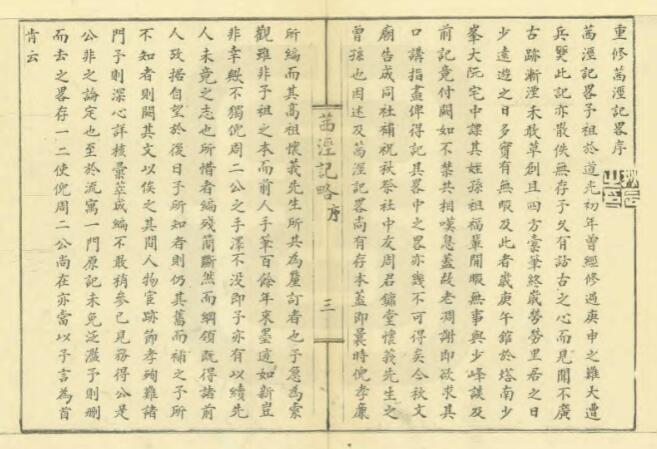 重修茜涇記畧序
茜涇記畧予祖於道光初年曾經修過庚申之難大遭
兵燹此記亦散佚無存予久有話古之心而見聞不廣
古跡漸湮未敢草創且四方橐筆終歲勞勞里居之日
少遠遊之日多實有無暇及此者歲庚午館於塔南少
峯大阮宅中課其姪孫祖福菓閒暇無事與少峰談及
前記竟付闕如不禁共相嘆息蓋故老凋謝即欲求其
口講指畫俾得記其畧中之畧亦幾不可得矣今秋文
廟告成同社補祝秋祭社中友周君鏞堂懷義先生之
曾孫也因述及茜涇記畧尚有存本蓋即曩時倪孝廉
茜涇記略序
三
所編而其高祖懷義先生所共為釐訂者也予急為索
觀雖非予祖之本而前人手筆百餘年來墨迹如新豈
非幸歟不獨倪周二公之手澤不没即予亦有以續先
人未竟之志也所惜者編殘簡斷然而綱領既得諸前
人攷據自望於後日予所知者則仍其舊而補之予所
不知者則闕其文以俟之其間人物宦跡節孝殉難諸
門予則深心詳核彙萃成編不敢稍參已見務得公是
公非之論定也至於流寓一門原記未免泛濫予則刪
而去之畧存一二使倪周二公尚在亦當以予言為首
肯云